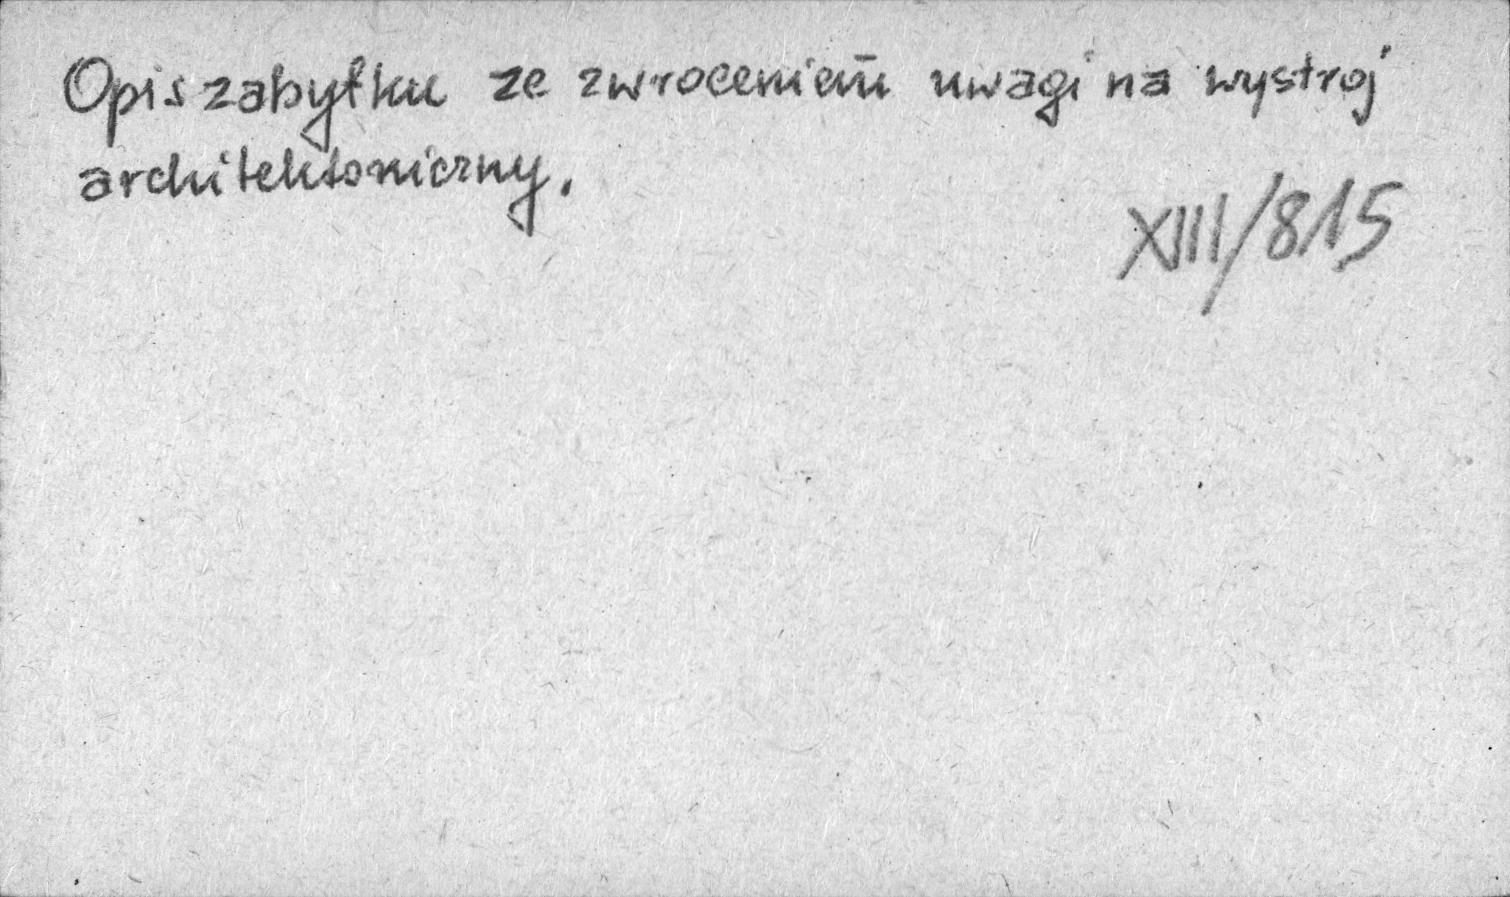 Opis zabytku ze zwroceniem uwagi na wystroj
architektoniczny.
XIII/815